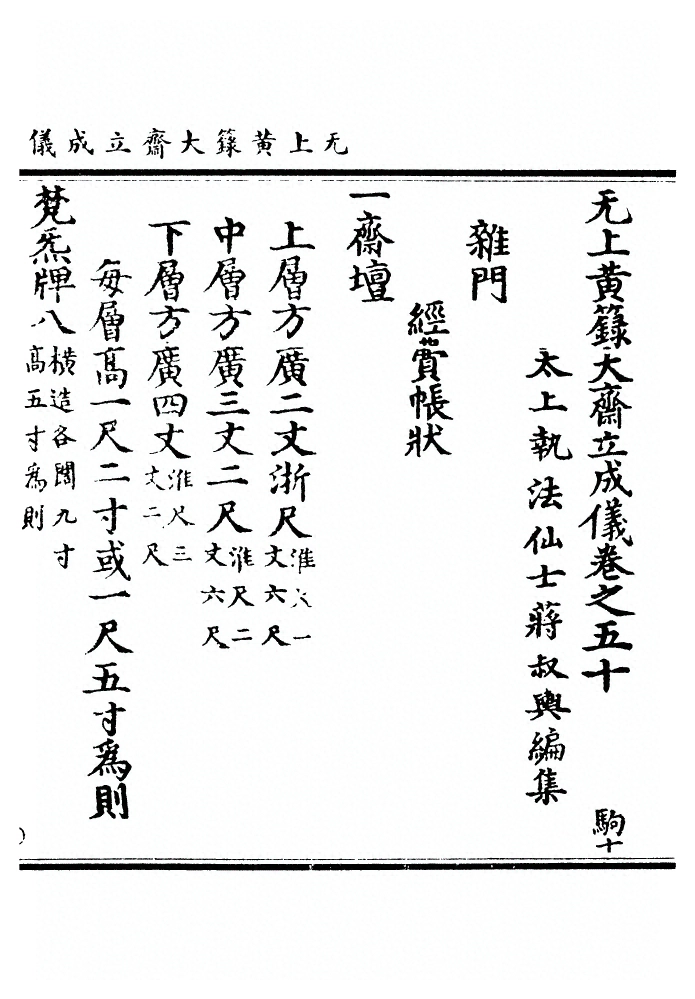 无上黄籙大齋立成儀
无上黄籙大齋立成儀卷之五十 駒十
太上執法仙士蔣叔輿編集
雜門
經費帳狀
一齋壇
上層方廣二丈浙尺淮尺一丈六尺
中層方廣三丈二尺淮尺二丈六尺
下層方廣四丈淮尺三丈二尺
每層高一尺二寸或一尺五寸爲則
梵炁牌八橫造各闊九寸高五寸爲則